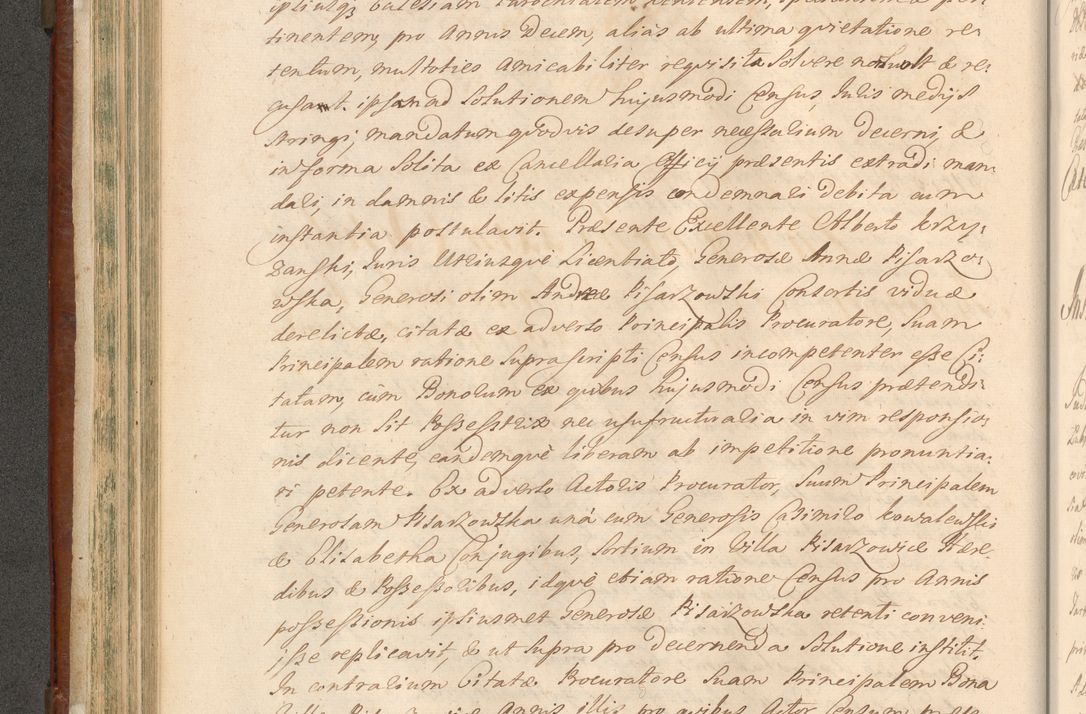 ipsiusq3 Ecclesiam Parochialem
tinentem, pro Annis Decem, alias ab ultima quietatione re:
tentum, multoties Amicabiliter requisita Solvere noluit & re:
cusavit. ipsam ad Solutionem hujusmodi Census, Iuris medijs
stringi, mandatum quodvis desuper necessarium decerni, &
in forma Solita ex Cancellaria Officij præsentis extradi man:
dari, in damnis & litis expensis condemnari debita cum
instantia postulavit. Præsente Excellente Alberto Krzy:
zanski, Iuris Utriusquè Licentiato, Generosæ Annæ Pisarzo:
wska, Generosi olim Andreæ Pisarzowski Consortis viduæ
derelictæ, citatæ ex adverso Principalis Procuratore, Suam
Principalem ratione Suprascripti Census incompetenter esse Ci:
tatam, cùm Bonorum ex quibus hujusmodi Census prætendi:
tur non Sit Possesstrix nec usufructuaria in vim responsio:
nis dicente, eandemquè liberam ab impetitione pronuntia:
ri petente. Ex adverso Actoris Procurator, Suum Principalem
Generosam Pisarzowska unà cum Generosis Casimiro Kowalewski
& Elisabetha Conjugibus, Sortium in Villa Pisarzowice Hære:
dibus & Possessoribus, idquè etiam ratione Census pro Annis
possessionis ipsiusmet Generosæ Pisarzowska retenti conveni:
isse replicavit, & ut Supra pro decernenda Solutione institit.
In contrarium Citatæ Procuratore Suam Principalem Bona
Annis illis pro quibus Actor Censum